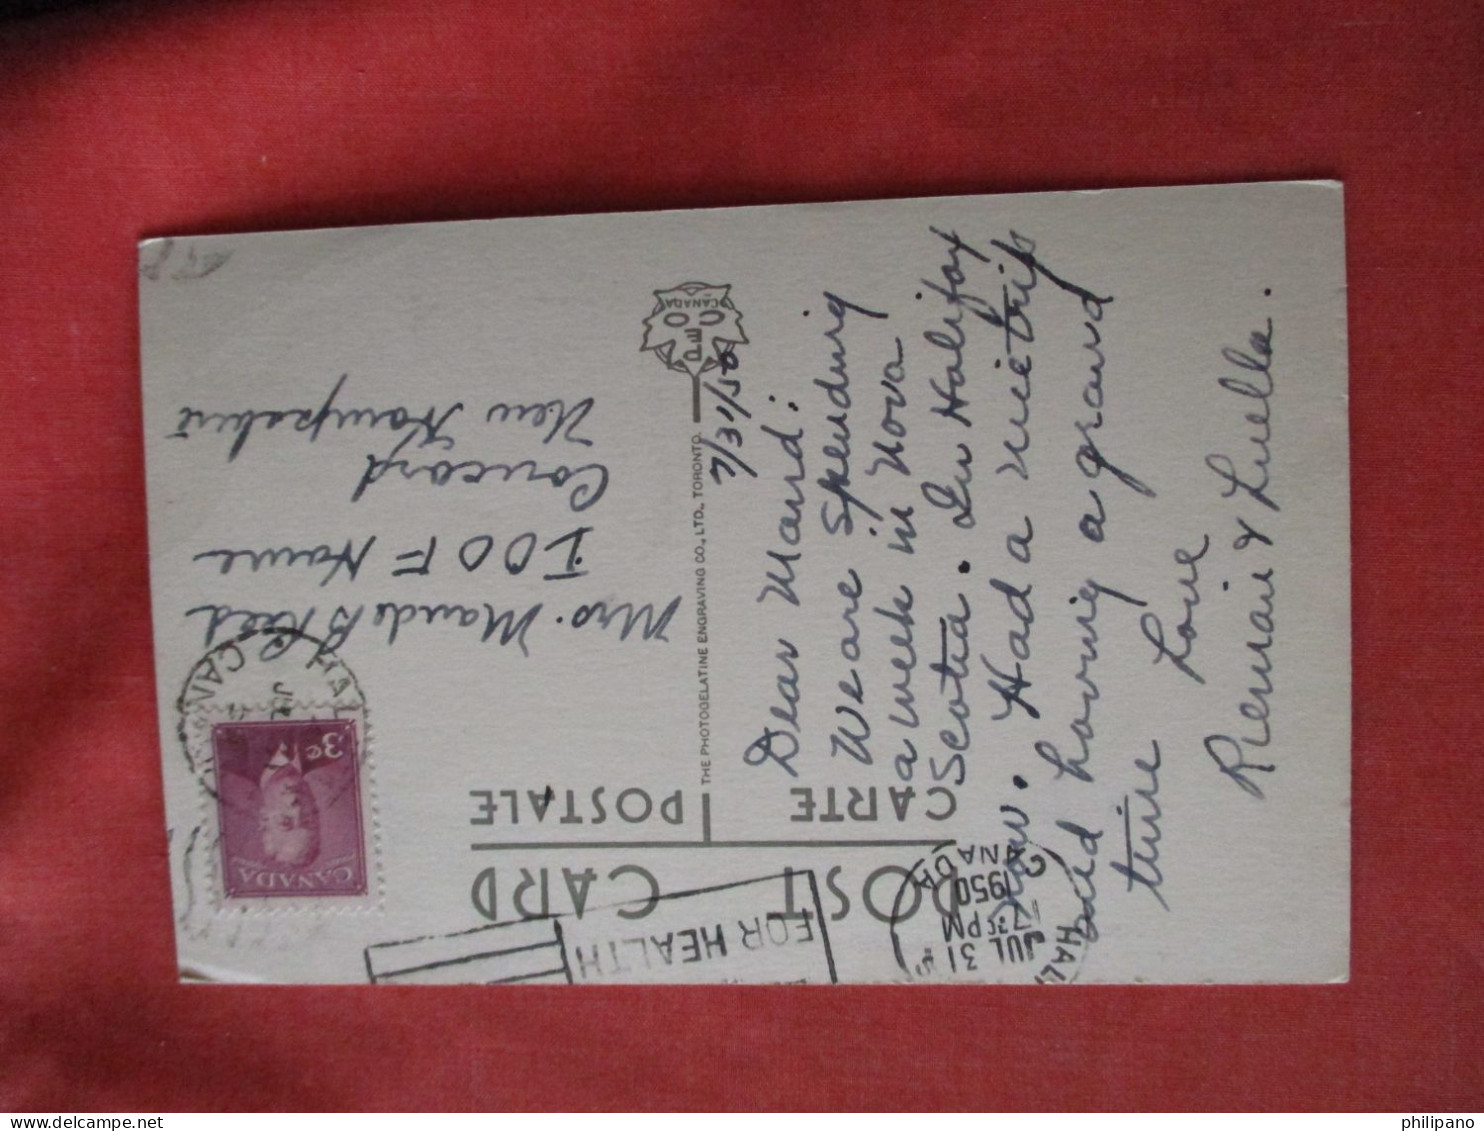 POST CARD
CARTE POSTALE
HALI
JUL 31
7 30 PM
1950
CANADA
FOR HEALTH
CANADA
3¢
7/31/50
Dear Maud:
We are spending
a week in Nova
Scotia. In Halifax
now. Had a nice trip
and having a grand
time
Love
& Luella.
THE PHOTOGELATINE ENGRAVING CO., LTD., TORONTO.
PECO
CANADA
Mrs. Maude B Reed
IOOF Home
Concord
New Hampshire
philipano